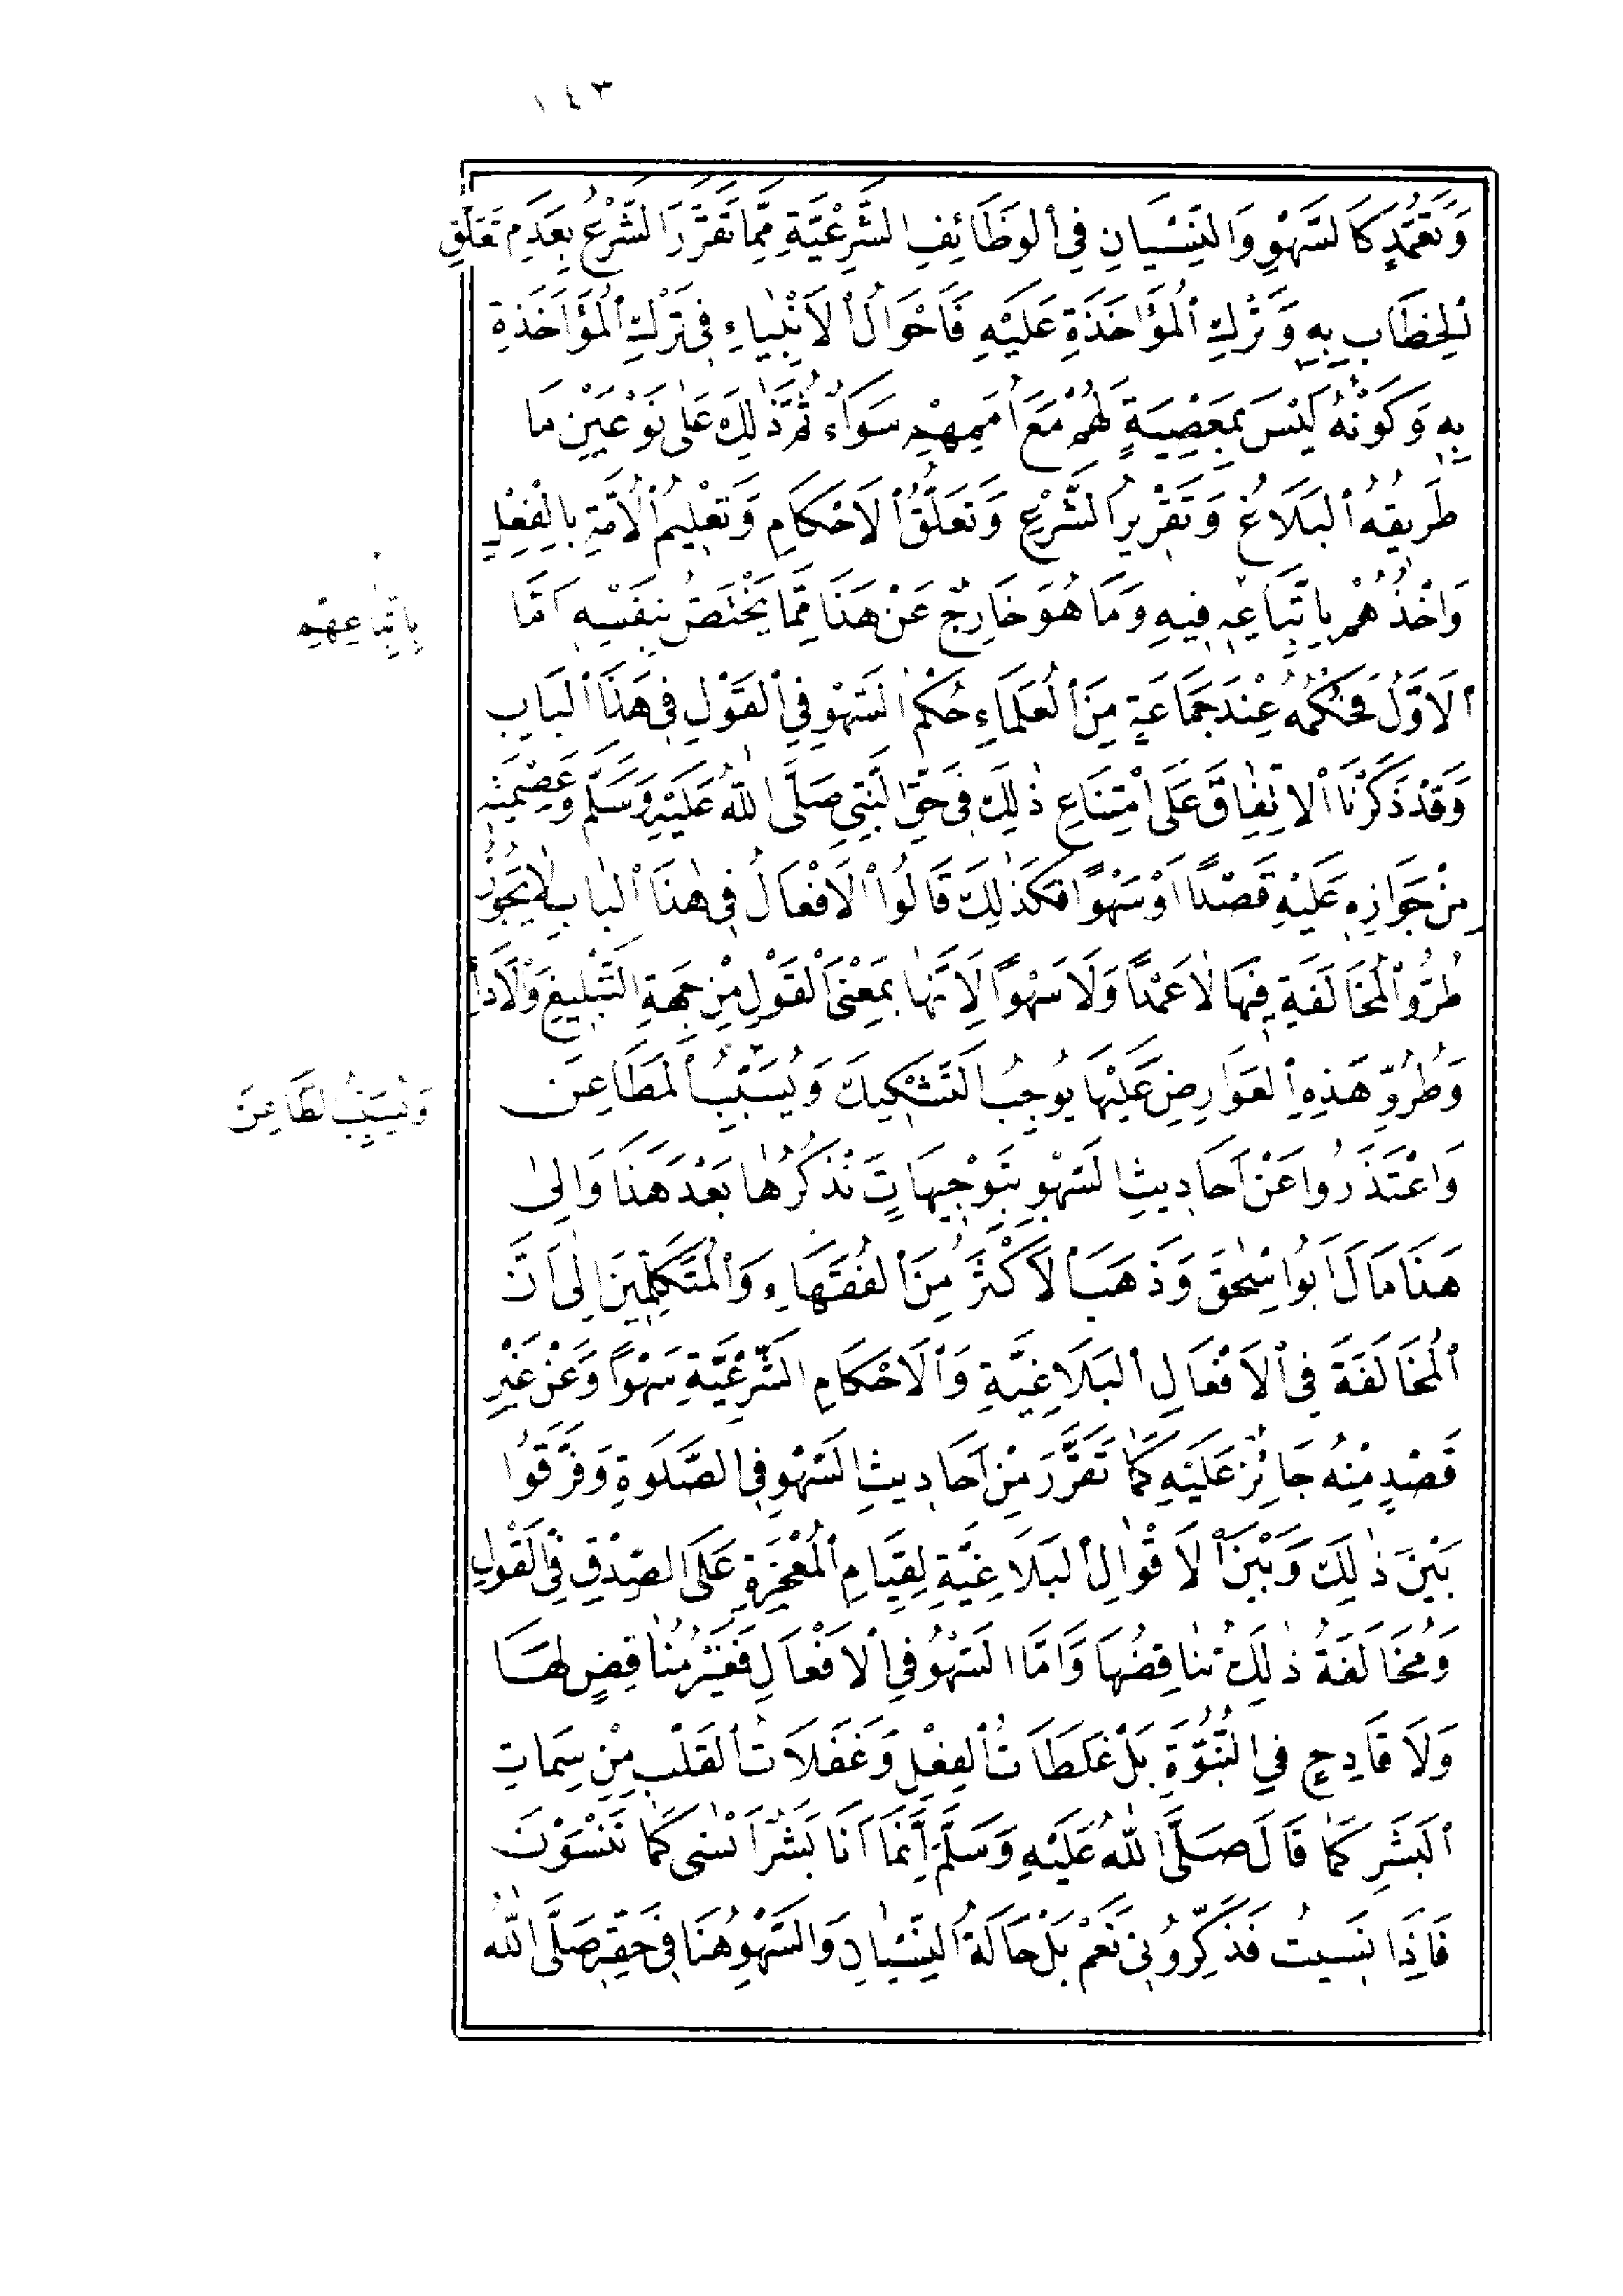 ١٤٣
وَتَعَمُّدٍ كَالسَّهْوِ وَالنِّسْيَانِ فِى الْوَظَائِفِ الشَّرْعِيَّةِ مِمَّا تَقَرَّرَ الشَّرْعُ بِعَدَمِ تَعَلُّقِ
الْخِطَابِ بِهِ وَتَرْكِ الْمُؤَاخَذَةِ عَلَيْهِ فَاَحْوَالُ الْاَنْبِيَاءِ فِى تَرْكِ الْمُؤَاخَذَةِ
بِهِ وَكَوْنُهُ لَيْسَ بِمَعْصِيَةٍ لَهُمْ مَعَ اُمَمِهِمْ سَوَاءٌ ثُمَّ ذٰلِكَ عَلٰى نَوْعَيْنِ مَا
طَرِيقُهُ الْبَلَاغُ وَتَقْرِيرُ الشَّرْعِ وَتَعَلُّقُ الْاَحْكَامِ وَتَعْلِيمُ الْاُمَّةِ بِالْفِعْلِ
وَاَخْذُهُمْ بِاتِّبَاعِهِ فِيهِ وَمَا هُوَ خَارِجٌ عَنْ هَذَا مِمَّا يَخْتَصُّ بِنَفْسِهِ اَمَّا
بِاتِّبَاعِهِمْ
الْاَوَّلُ فَحُكْمُهُ عِنْدَ جَمَاعَةٍ مِنَ الْعُلَمَاءِ حُكْمُ السَّهْوِ فِى الْقَوْلِ فِى هَذَا الْبَابِ
وَقَدْ ذَكَرْنَا الْاِتِّفَاقَ عَلَى امْتِنَاعِ ذٰلِكَ فِى حَقِّ النَّبِيِّ صَلَّى اللّٰهُ عَلَيْهِ وَسَلَّمَ وَعِصْمَتِهِ
مِنْ جَوَازِهِ عَلَيْهِ قَصْدًا اَوْ سَهْوًا فَكَذٰلِكَ قَالُوا الْاَفْعَالُ فِى هٰذَا الْبَابِ لَا يَجُوزُ
طُرُوُّ الْمُخَالَفَةِ فِيهَا لَا عَمْدًا وَلَا سَهْوًا لِاَنَّهَا بِمَعْنَى الْقَوْلِ مِنْ جِهَةِ التَّبْلِيغِ وَالْاَدَاءِ
وَطُرُوُّ هَذِهِ الْعَوَارِضِ عَلَيْهَا يُوجِبُ التَّشْكِيكَ وَيُسَبِّبُ الْمَطَاعِنَ
وَتُسَبِّبُ الْمَطَاعِنَ
وَاعْتَذَرُوا عَنْ اَحَادِيثِ السَّهْوِ بِتَوْجِيهَاتٍ نَذْكُرُهَا بَعْدَ هَذَا وَاِلٰى
هَذَا مَالَ اَبُو اِسْحٰقَ وَذَهَبَ الْاَكْثَرُ مِنَ الْفُقَهَاءِ وَالْمُتَكَلِّمِينَ اِلٰى اَنَّ
الْمُخَالَفَةَ فِى الْاَفْعَالِ الْبَلَاغِيَّةِ وَالْاَحْكَامِ الشَّرْعِيَّةِ سَهْوًا وَعَنْ غَيْرِ
قَصْدٍ مِنْهُ جَائِزٌ عَلَيْهِ كَمَا تَقَرَّرَ مِنْ اَحَادِيثِ السَّهْوِ فِى الصَّلٰوةِ وَفَرَّقُوا
بَيْنَ ذٰلِكَ وَبَيْنَ الْاَقْوَالِ الْبَلَاغِيَّةِ لِقِيَامِ الْمُعْجِزَةِ عَلَى الصِّدْقِ فِى الْقَوْلِ
وَمُخَالَفَةُ ذٰلِكَ تُنَاقِضُهَا وَاَمَّا السَّهْوُ فِى الْاَفْعَالِ فَغَيْرُ مُنَاقِضٍ لَهَا
وَلَا قَادِحٍ فِى النُّبُوَّةِ بَلْ غَلَطَاتُ الْفِعْلِ وَغَفَلَاتُ الْقَلْبِ مِنْ سِمَاتِ
الْبَشَرِ كَمَا قَالَ صَلَّى اللّٰهُ عَلَيْهِ وَسَلَّمَ اِنَّمَا اَنَا بَشَرٌ اَنْسٰى كَمَا تَنْسَوْنَ
فَاِذَا نَسِيتُ فَذَكِّرُونِى نَعَمْ بَلْ حَالَةُ النِّسْيَانِ وَالسَّهْوِ هُنَا فِى حَقِّهِ صَلَّى اللّٰهُ